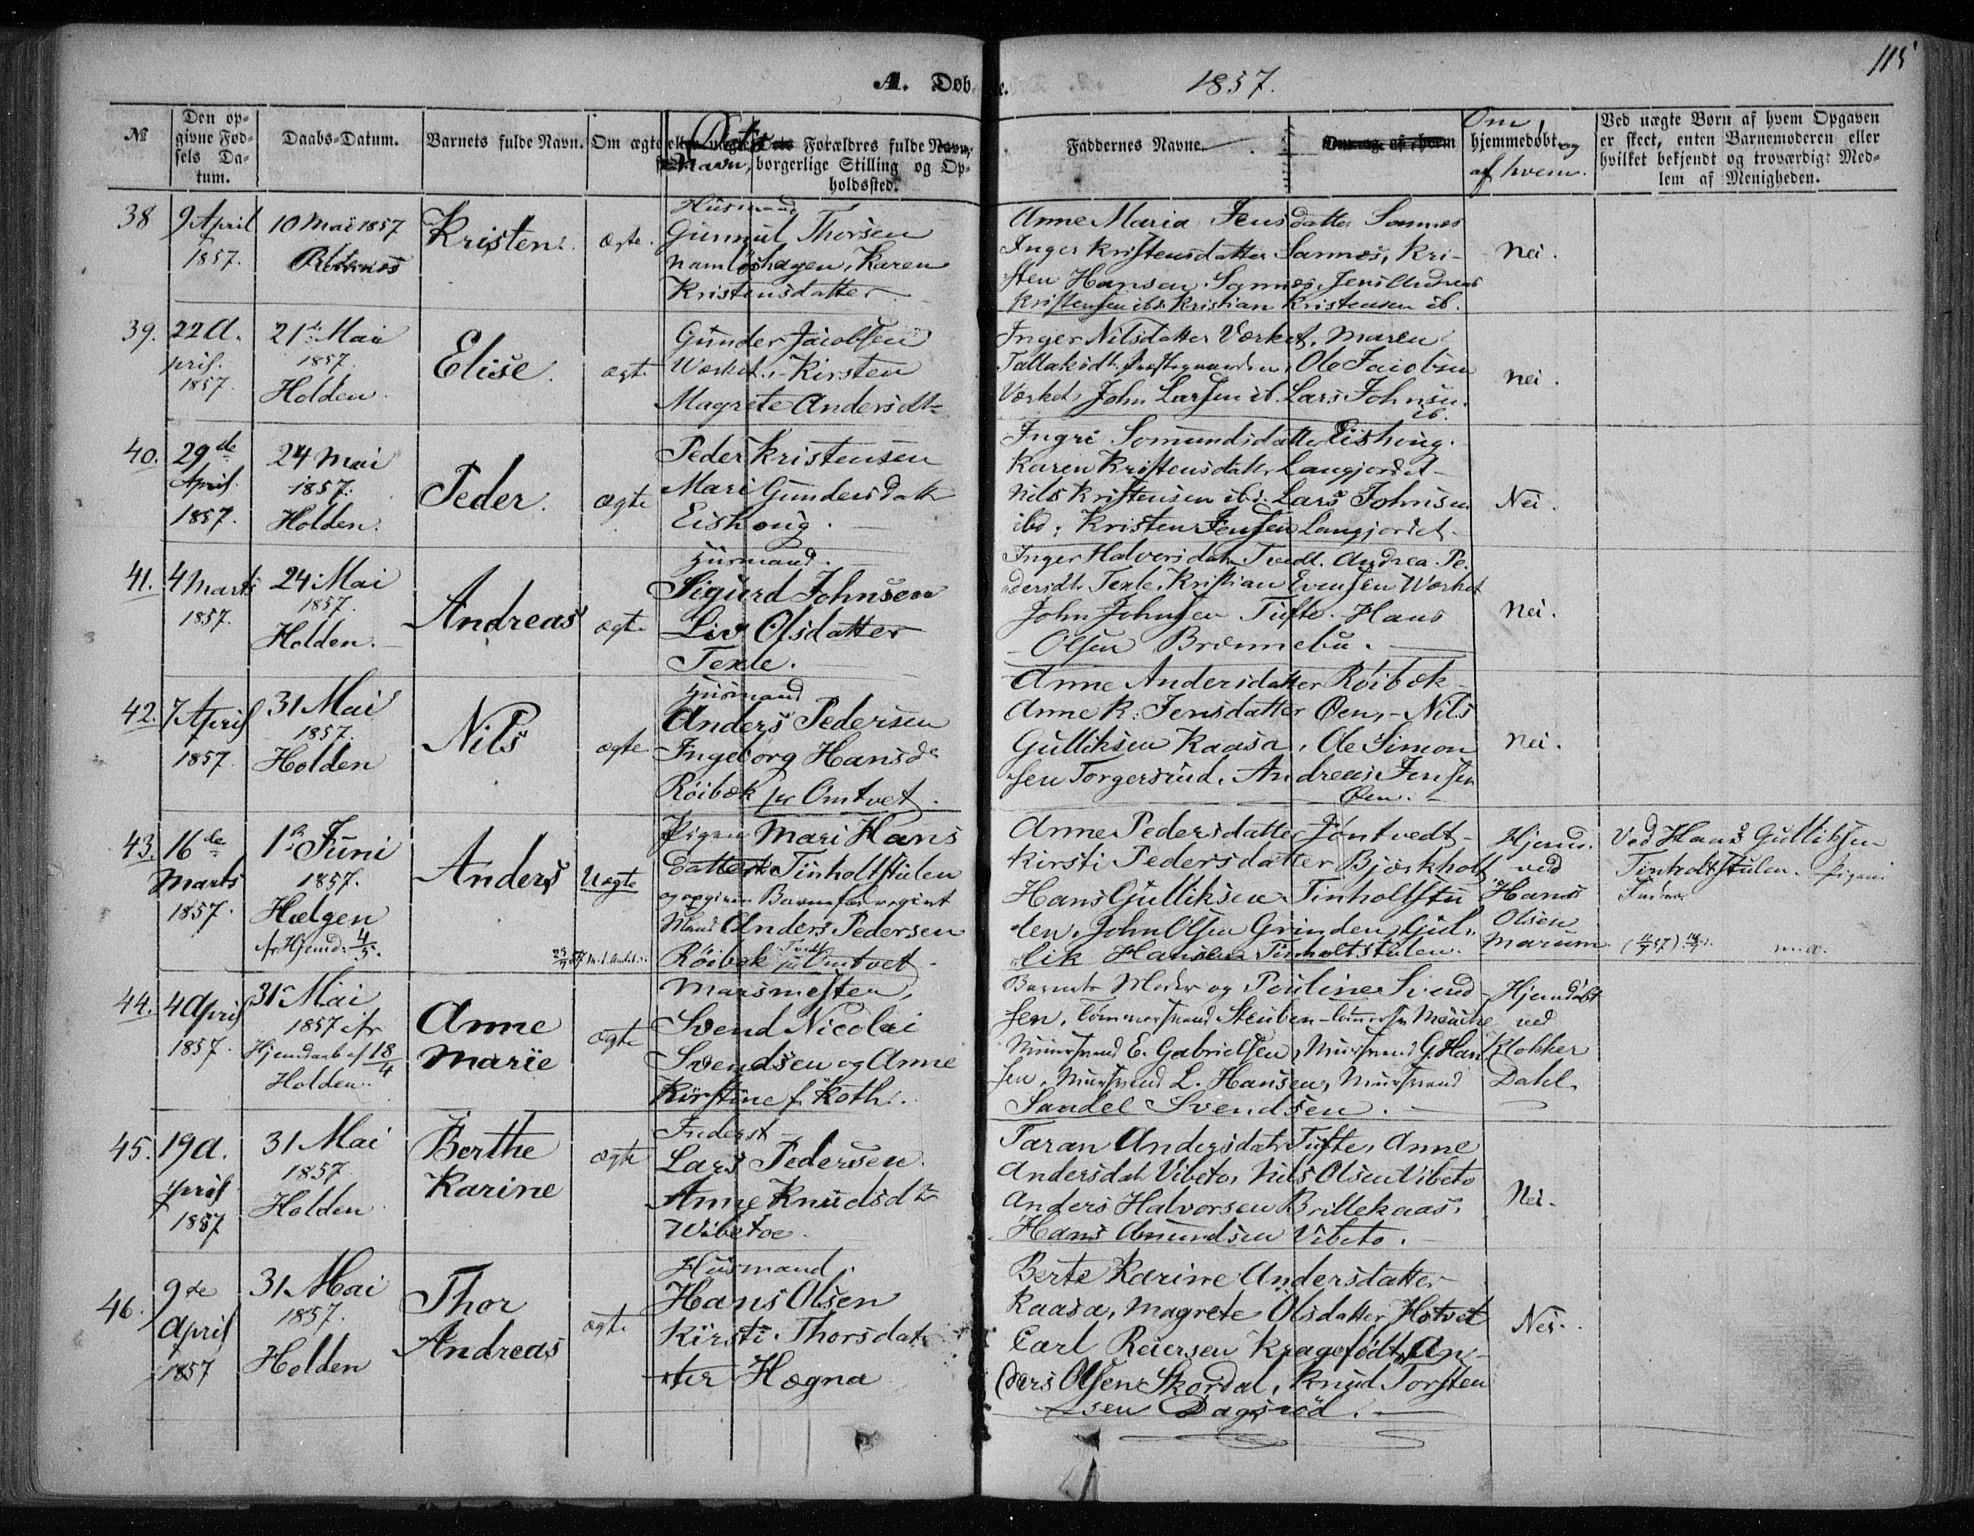 115
A. Døb e. 1857.
№
Den op-
givne Fød-
sels Da-
tum.
Daabs-Datum.
Barnets fulde Navn.
Om ægte eller uægte
Dets Forældres fulde Navn,
Navn, borgerlige Stilling og Op-
holdssted.
Faddernes Navne.
Om
hjemmedøbt og
af hvem.
Ved uægte Børn af hvem Opgaven
er skeet, enten Barnemoderen eller
hvilket bekjendt og troværdigt Med-
lem af Menigheden.
38
9 April
1857.
10 Mai 1857
Kristen.
ægte.
Husmand
Gunnul Thorsen
Namløshagen, Karen
Kristensdatter
Anne Maria Jensdatter Sannes
Inger Kristensdatter Sannes, Kri-
sten Hansen Sannes, Jens Andreas
Kristensen ibd. Kristian Kristensen ib.
Nei.
39.
22 A-
pril.
1857.
21de Mai
1857.
Holden.
Elise.
ægt.
Gunder Jacobsen
Værket, Kirsten
Magrete Andersdt
Inger Nilsdatter Værket, Maren
Tallaksdt. Præstegaarden, Ole Jacobsen
Værket, John Larsen ib. Lars Johnsen.
ib.
Nei.
40.
29de
April.
1857.
24 Mai
1857.
Holden.
Peder.
ægte
Peder Kristensen
Mari Gundersdatt
Eishoug.
Ingri Somundsdatter Eishoug.
Karen Kristensdatter Langjordet
Nils Kristensen ibd. Lars Johnsen
ibd: Kristen Jensen Langjordet.
Nei.
41.
4 Marts
1857.
24 Mai
1857.
Holden.
Andreas
ægte
Husmand.
Sigurd Johnsen
Liv Olsdatter
Texle.
Inger Halvorsdatr Tvedt. Andrea Pe-
dersdt. Texle, Kristian Evensen Værket
John Johnsen Tufte. Hans
Olsen Brennebu.
Nei.
42.
7 April
1857.
31 Mai
1857.
Holden
Nils
ægte
Husmand
Anders Pedersen
Ingeborg Hansdr
Røibæk pr Omtvet.
Anne Andersdatter Røibæk
Anne K. Jensdatter Øen, Nils
Gulliksen Kaasa, Ole Simon
sen Torgersrud, Andreas Jensen
Øen.
Nei.
43.
16de
Marts
1857.
1ste Juni
1857.
Hælgen
fr Hjemd. 4/5.
Anders
Uægte
Pigen Mari Hans
datter Tinholtstulen
og opgiven Barnefader ugivt
Mand Anders Pedersen
Røibæk pr Omtvet.
Anne Pedersdatter Jøntvedt
Kirsti Pedersdatter Bjørkholt
Hans Gulliksen Tinholtstu
len, John Olsen Grinden, Gul-
lik Hansen Tinholtstulen.
Hjemd.
ved
Hans
Olsen
Marum
Ved Hans Gulliksen
Tinholtstulen. Pigens
Fader
44.
4 April
1857.
31 Mai
1857 fr
Hjemdaab af 18/4
Holden.
Anne
Marie
ægte
Marsmester,
Svend Nicolai
Svendsen og Anne
Kirstine f. Koth.
Barnets Moder og Pouline Svend
sen, Tømmermand Steuben
E. Gabrielsen, G. Han
sen, L. Hansen,
Sandel Svendsen.
Hjemdøbt
ved
Klokker
Dahl.
45.
19 A-
pril
1857
31 Mai
1857.
Holden.
Berthe
Karine
ægte
Inderst
Lars Pedersen.
Anne Knudsdtr
Wibetoe.
Taran Andersdatr Tufte, Anne
Andersdat Vibeto, Nils Olsen Vibeto
Anders Halvorsen Brillekaas.
Hans Amundsen Vibeto.
Nei.
46.
9de
April
1857
31 Mai
1857.
Holden
Thor
Andreas
ægte
Husmand.
Hans Olsen
Kirsti Thorsdat-
ter Hægna
Berte Karine Andersdatter
Kaasa, Magrete Olsdatter Hotvet
Carl Reiersen Kragefødt, An-
ders Olsen Skordal, Knud Torsten
sen Dagsrød.
Nei.